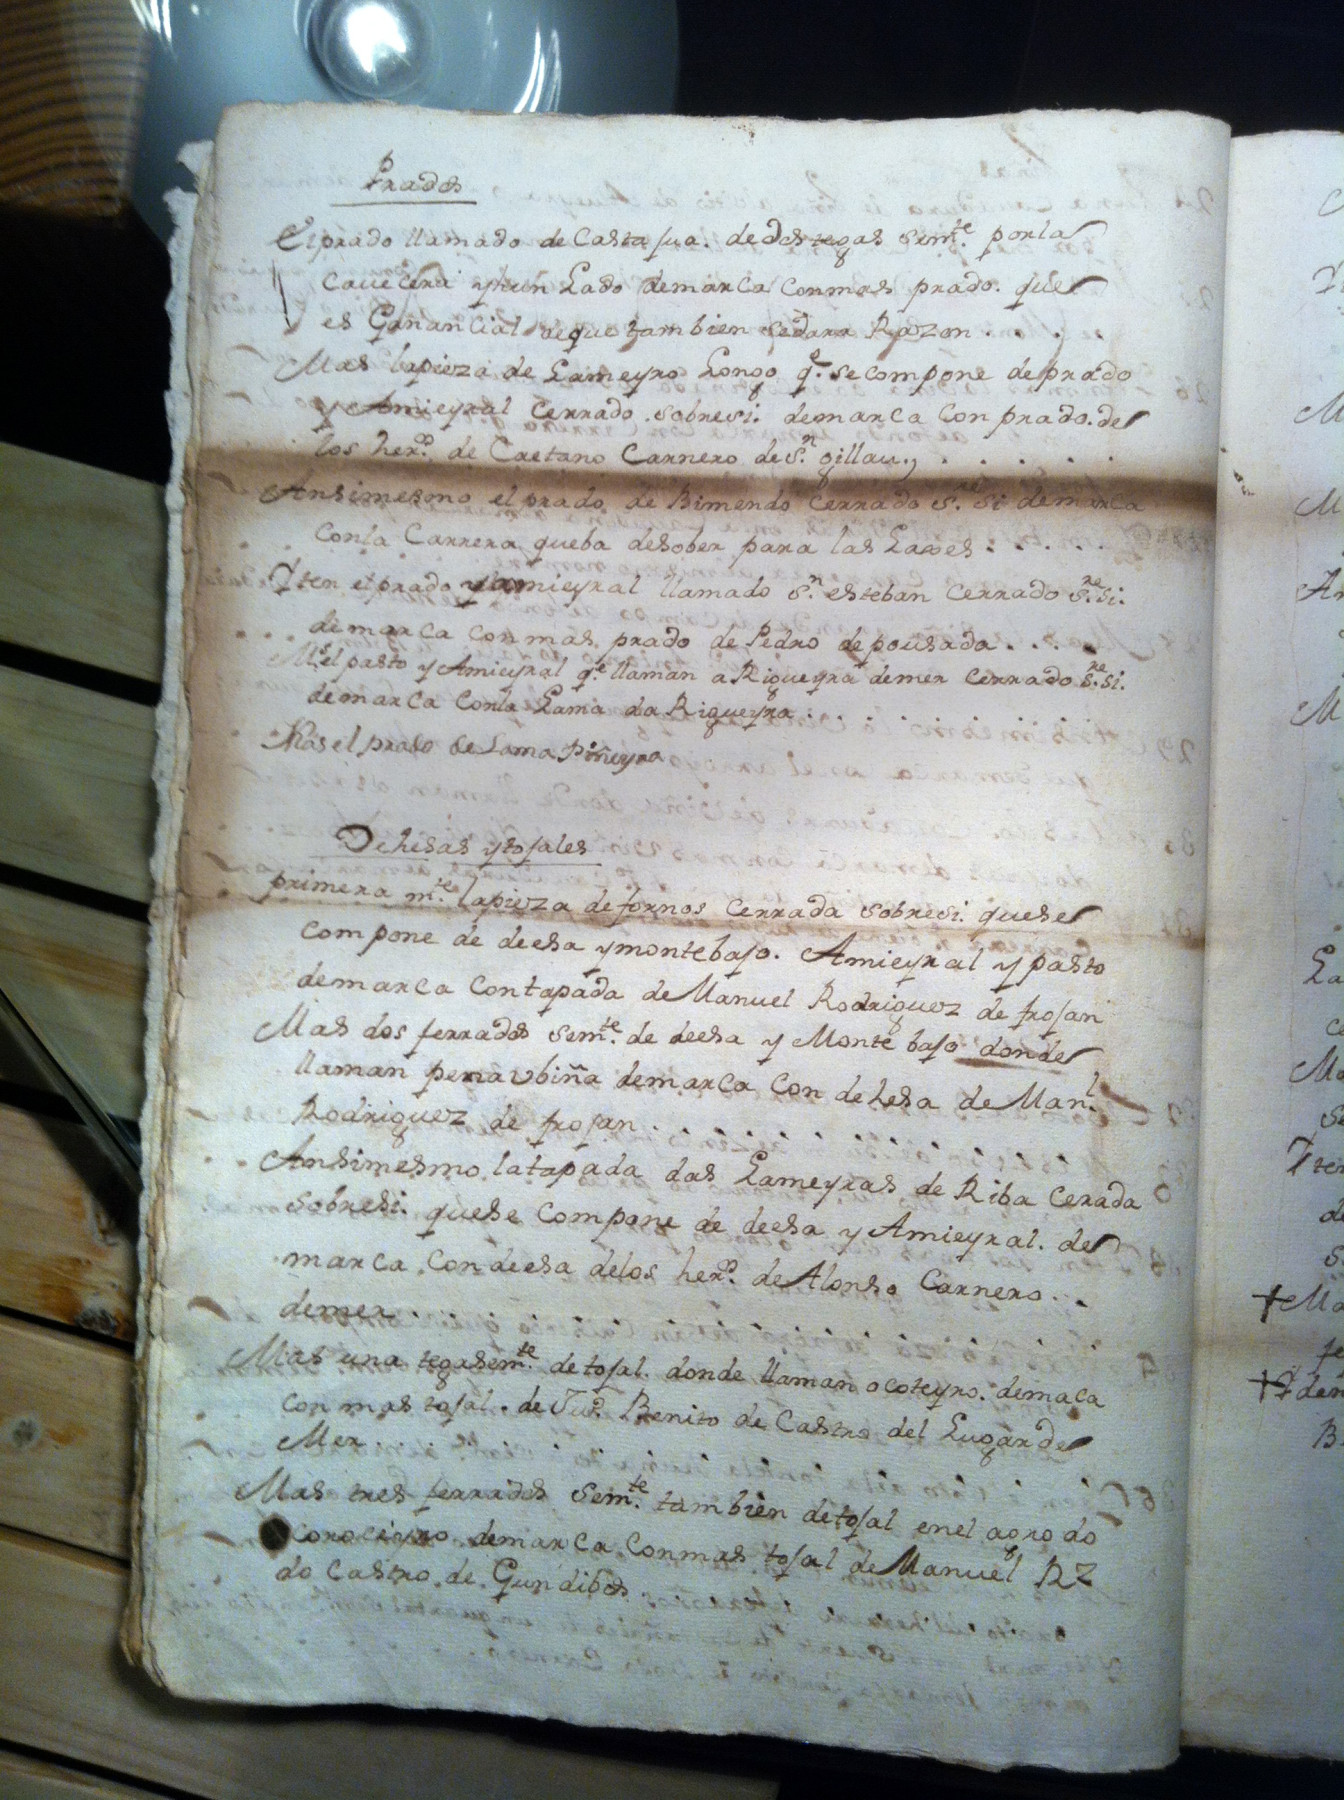 Prados
El prado llamado de Castasua. de dos tegas semte. por la
cavecera y hun Lado demarca con mas prado. que
es Ganancial de que tambien se dara Razon . . .
Mas la pieza de Lameyro Longo qe. se compone de prado
y Amieyral cerrado sobre si. demarca con prado. de
los hero. de Caetano Carnero de Sn. gillau, . . . . .
Ansimesmo el prado de Bimendo cerrado sre. si demarca
con la Carrera que ba de sober para las Laxes . . . . .
Iten el prado y amieyral llamado Sn. esteban cerrado sre. si.
demarca con mas prado de Pedro de pousada . . . .
Ms el pasto y Amieyral qe. llaman a Rigueyra de mer cerrado sre. si.
demarca con la Lama da Rigueyra . . . . . . .
Mas el prado de Lama Piñeyra
Dehesas y tojales
primera mte. la pieza de fornos cerrada sobre si. que se
compone de deesa y monte bajo. Amieyral y pasto
demarca con tapada de Manuel Rodriguez de frojan
Mas dos ferrados semte. de deesa y Monte bajo donde
llaman pena ubiña demarca con dehesa de Manl.
Rodriguez de frojan . . . . . . . . . .
Ansimesmo la tapada das Lameyras de Riba cerada
sobre si. que se compone de deesa y Amieyral. de
marca con deesa de los hero. de Alonso Carnero . .
de mer . . . . . . . . . .
Mas una tega semte. de tojal. donde llaman o coteyro. demaca
con mas tojal. de Juo. Benito de Castro del Lugar de
Mer . . . . . . . . . .
Mas tres ferrados semte. tambien de tojal en el agro do
corocieyro demarca con mas tojal de Manuel RZ
do Castro de Gundibos . . . . . . .